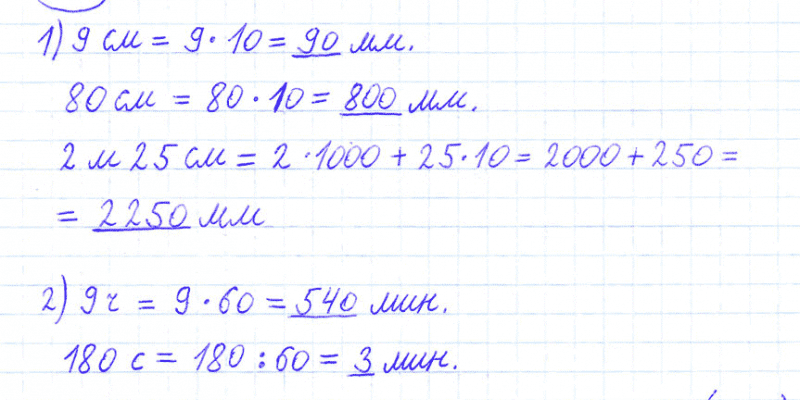 1) 9 см = 9 · 10 = 90 мм.
80 см = 80 · 10 = 800 мм.
2 м 25 см = 2 · 1000 + 25 · 10 = 2000 + 250 =
= 2250 мм
2) 9 ч = 9 · 60 = 540 мин.
180 с = 180 : 60 = 3 мин.